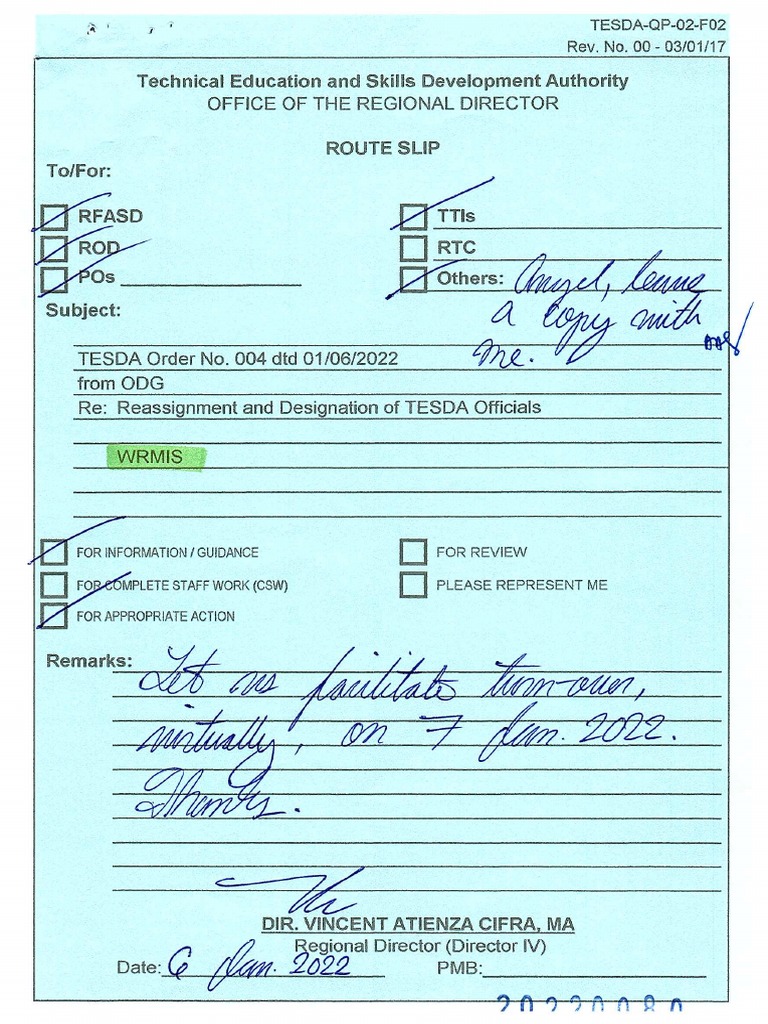 TESDA-QP-02-F02
Rev. No. 00 - 03/01/17
Technical Education and Skills Development Authority
OFFICE OF THE REGIONAL DIRECTOR
ROUTE SLIP
To/For:
RFASD
TTIs
ROD
RTC
POs
Others: Angel, leave
a copy with
me.
Subject:
TESDA Order No. 004 dtd 01/06/2022
from ODG
Re: Reassignment and Designation of TESDA Officials
WRMIS
FOR INFORMATION / GUIDANCE
FOR REVIEW
FOR COMPLETE STAFF WORK (CSW)
PLEASE REPRESENT ME
FOR APPROPRIATE ACTION
Remarks: Let us facilitate turn-over,
virtually, on 7 Jan. 2022.
Thanks.
DIR. VINCENT ATIENZA CIFRA, MA
Regional Director (Director IV)
Date: 6 Jan. 2022 PMB: